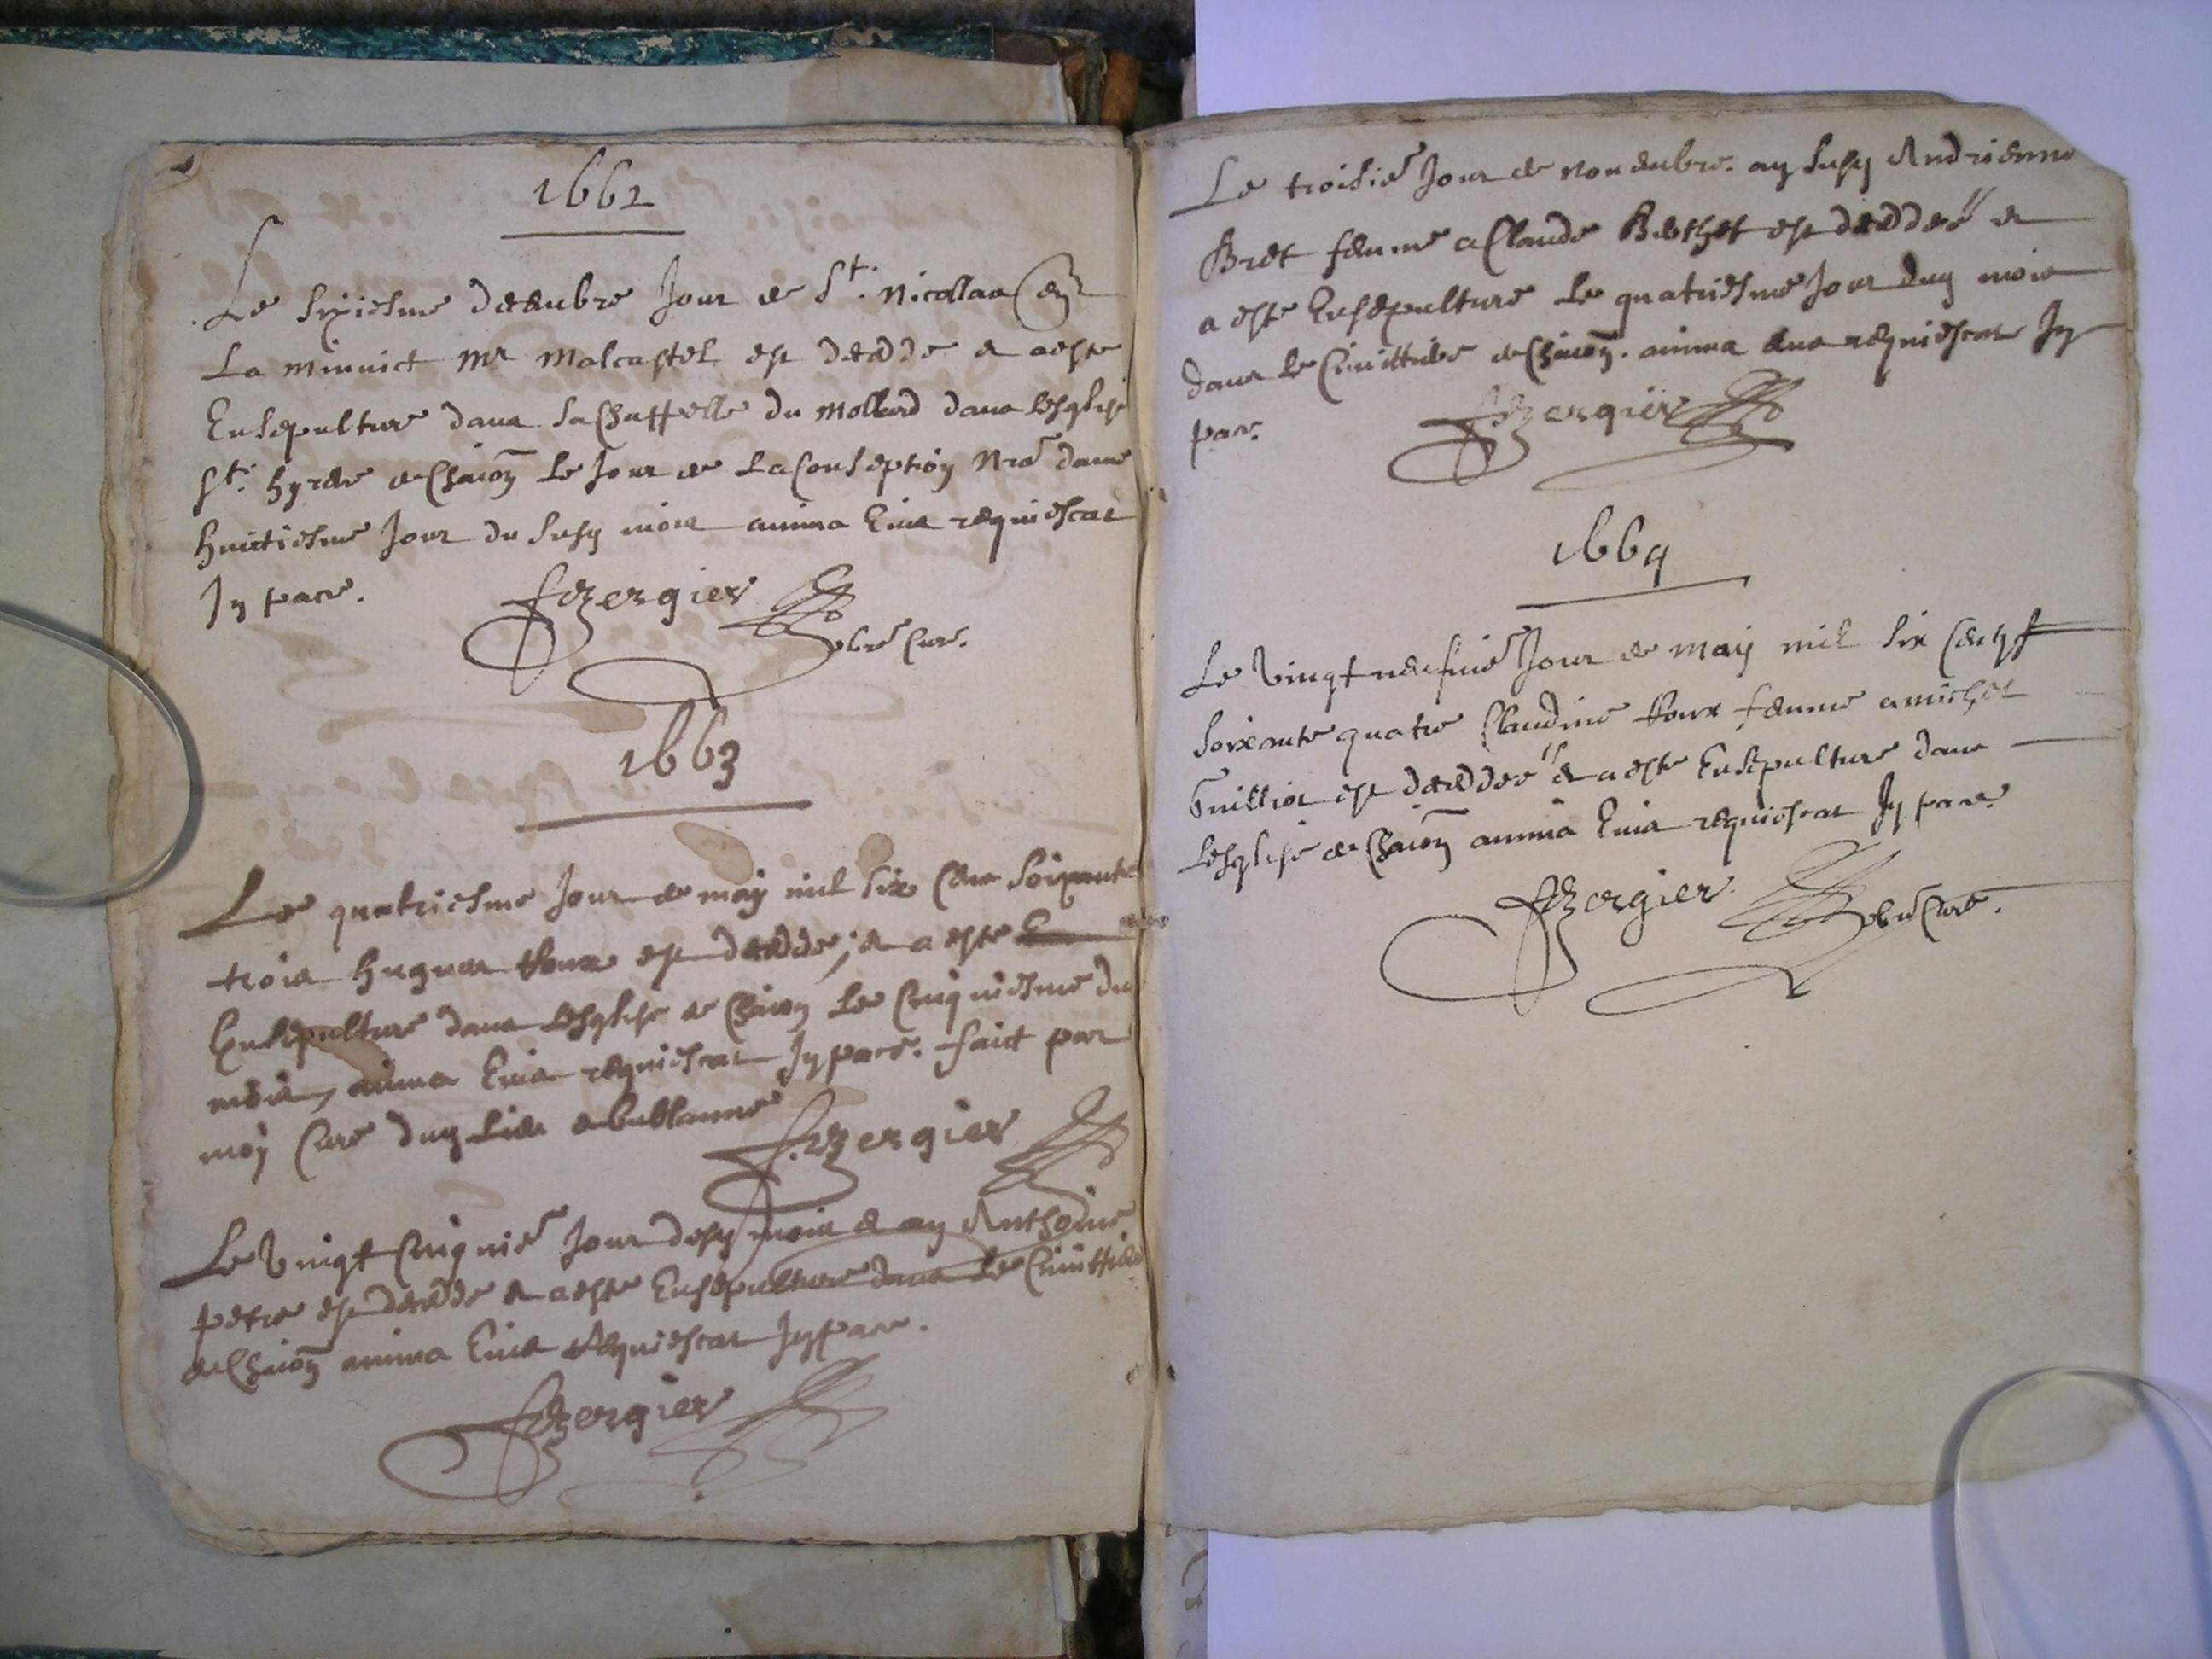 1662
Le sixiesme decembre Jour de St. Nicollas
La minuict Mr Malcastel est decedde & a este
Ensepulture dans sa Chappelle du Mollard dans lesglise
St. hyrere de Chaion Le Jour de La Conseption Nre dame
huictiesme Jour du susy mois anima Eius requiescat
Jn pace. Bergier
pbre Curé.
1663
Le quatriesme Jour de may mil six Cens soixante
trois hugues Roux est decedde; & a este
Ensepulture dans Lesglise de Chaion Le Cinquiesme du
mois, anima Eius requiescat Jn pace. faict par
moy Curé dun Lieu Bergier
Le Vingt Cinquie Jour desy mois & an Anthoine
petre est decedde & a este Ensepulture dans Le Cimittiere
de Chaion anima Eius Requiescat Jn pace.
Bergier
Le troisie Jour de Novembre. an susy Andrienne
Bret femme a Claude Berthet est deceddeé &
a este Ensepulture Le quatriesme Jour dug mois
dans Le Cimittiere de Chaion. anima eius requiescat Jn
pace. Bergier
1664
Le Vingt neufuie Jour de May mil six Cents
soixante quatre Claudine Roux femme a michel
Guillior est deceddeé & a este Ensepulture dans
Lesglise de Chaion anima Eius requiescat Jn pace
Bergier pbre Curé.